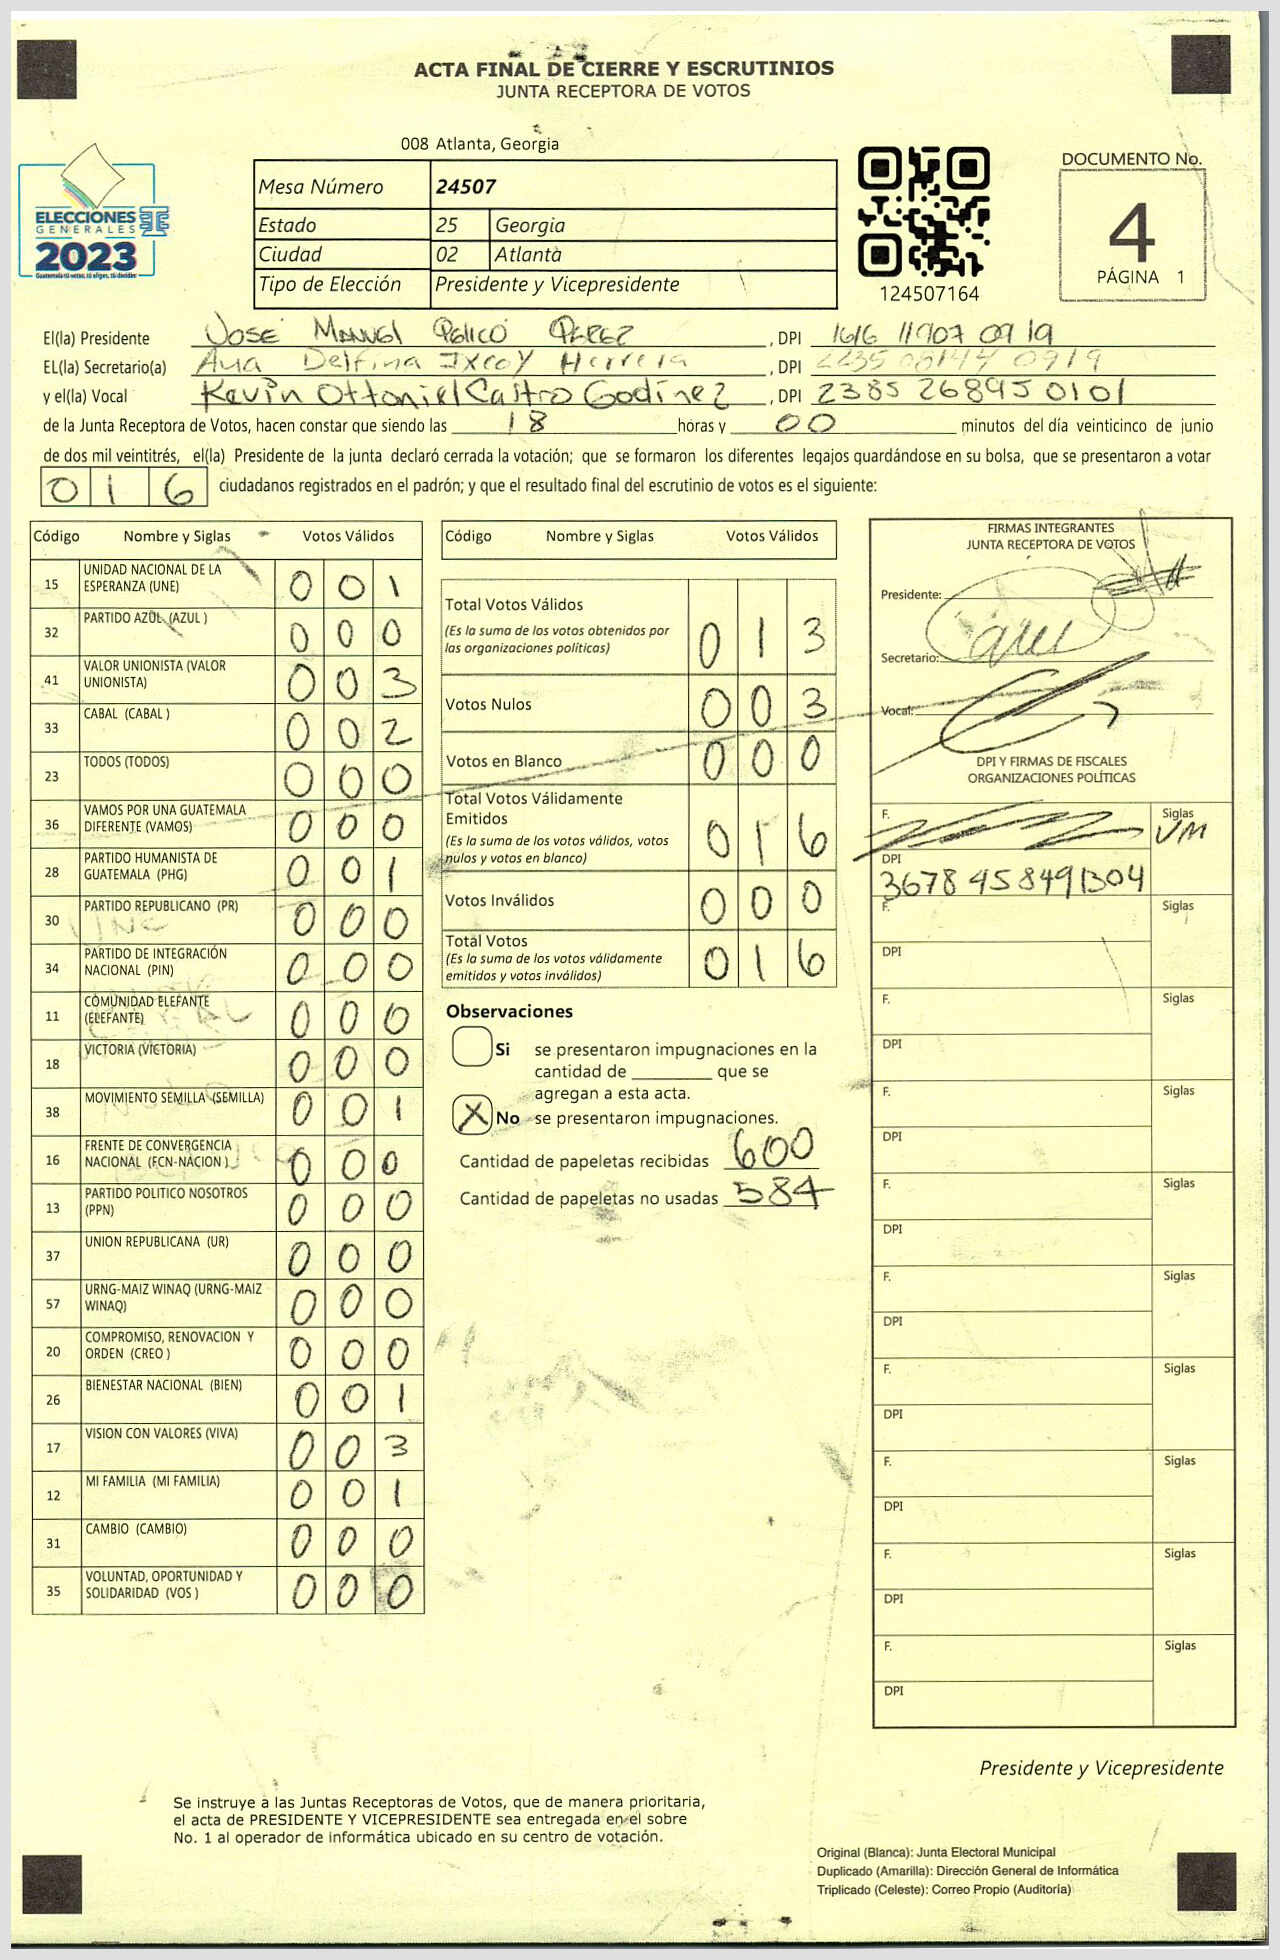 ACTA FINAL DE CIERRE Y ESCRUTINIOS
JUNTA RECEPTORA DE VOTOS
008 Atlanta, Georgia
ELECCIONES
GENERALES
2023
Guatemala tú votas, tú eliges, tú decides
Mesa Número 24507
Estado 25 Georgia
Ciudad 02 Atlanta
Tipo de Elección Presidente y Vicepresidente
124507164
DOCUMENTO No.
4
PÁGINA 1
El(la) Presidente JOSE MANUEL PELICÓ PEREZ, DPI 1616 11907 0919
EL(la) Secretario(a) Ana Delfina Ixcoy Herrera, DPI 2235 08144 0919
y el(la) Vocal Kevin Ottoniel Castro Godínez, DPI 2385 26895 0101
de la Junta Receptora de Votos, hacen constar que siendo las 18 horas y 00 minutos del día veinticinco de junio
de dos mil veintitrés, el(la) Presidente de la junta declaró cerrada la votación; que se formaron los diferentes legajos guardándose en su bolsa, que se presentaron a votar
016 ciudadanos registrados en el padrón; y que el resultado final del escrutinio de votos es el siguiente:
Código Nombre y Siglas Votos Válidos
15 UNIDAD NACIONAL DE LA ESPERANZA (UNE) 0 0 1
32 PARTIDO AZUL (AZUL ) 0 0 0
41 VALOR UNIONISTA (VALOR UNIONISTA) 0 0 3
33 CABAL (CABAL ) 0 0 2
23 TODOS (TODOS) 0 0 0
36 VAMOS POR UNA GUATEMALA DIFERENTE (VAMOS) 0 0 0
28 PARTIDO HUMANISTA DE GUATEMALA (PHG) 0 0 1
30 PARTIDO REPUBLICANO (PR) 0 0 0
34 PARTIDO DE INTEGRACIÓN NACIONAL (PIN) 0 0 0
11 COMUNIDAD ELEFANTE (ELEFANTE) 0 0 0
18 VICTORIA (VICTORIA) 0 0 0
38 MOVIMIENTO SEMILLA (SEMILLA) 0 0 1
16 FRENTE DE CONVERGENCIA NACIONAL (FCN-NACION ) 0 0 0
13 PARTIDO POLITICO NOSOTROS (PPN) 0 0 0
37 UNION REPUBLICANA (UR) 0 0 0
57 URNG-MAIZ WINAQ (URNG-MAIZ WINAQ) 0 0 0
20 COMPROMISO, RENOVACION Y ORDEN (CREO ) 0 0 0
26 BIENESTAR NACIONAL (BIEN) 0 0 1
17 VISION CON VALORES (VIVA) 0 0 3
12 MI FAMILIA (MI FAMILIA) 0 0 1
31 CAMBIO (CAMBIO) 0 0 0
35 VOLUNTAD, OPORTUNIDAD Y SOLIDARIDAD (VOS ) 0 0 0
Código Nombre y Siglas Votos Válidos
Total Votos Válidos 0 1 3
(Es la suma de los votos obtenidos por
las organizaciones políticas)
Votos Nulos 0 0 3
Votos en Blanco 0 0 0
Total Votos Válidamente
Emitidos 0 1 6
(Es la suma de los votos válidos, votos
nulos y votos en blanco)
Votos Inválidos 0 0 0
Total Votos 0 1 6
(Es la suma de los votos válidamente
emitidos y votos inválidos)
Observaciones
Si se presentaron impugnaciones en la
cantidad de ________ que se
agregan a esta acta.
X No se presentaron impugnaciones.
Cantidad de papeletas recibidas 600
Cantidad de papeletas no usadas 584
FIRMAS INTEGRANTES
JUNTA RECEPTORA DE VOTOS
Presidente:
Secretario:
Vocal:
DPI Y FIRMAS DE FISCALES
ORGANIZACIONES POLÍTICAS
F. Siglas VM
DPI 3678 45849 1304
F. Siglas
DPI
F. Siglas
DPI
F. Siglas
DPI
F. Siglas
DPI
F. Siglas
DPI
F. Siglas
DPI
F. Siglas
DPI
F. Siglas
DPI
F. Siglas
DPI
Presidente y Vicepresidente
Se instruye a las Juntas Receptoras de Votos, que de manera prioritaria,
el acta de PRESIDENTE Y VICEPRESIDENTE sea entregada en el sobre
No. 1 al operador de informática ubicado en su centro de votación.
Original (Blanca): Junta Electoral Municipal
Duplicado (Amarilla): Dirección General de Informática
Triplicado (Celeste): Correo Propio (Auditoría)